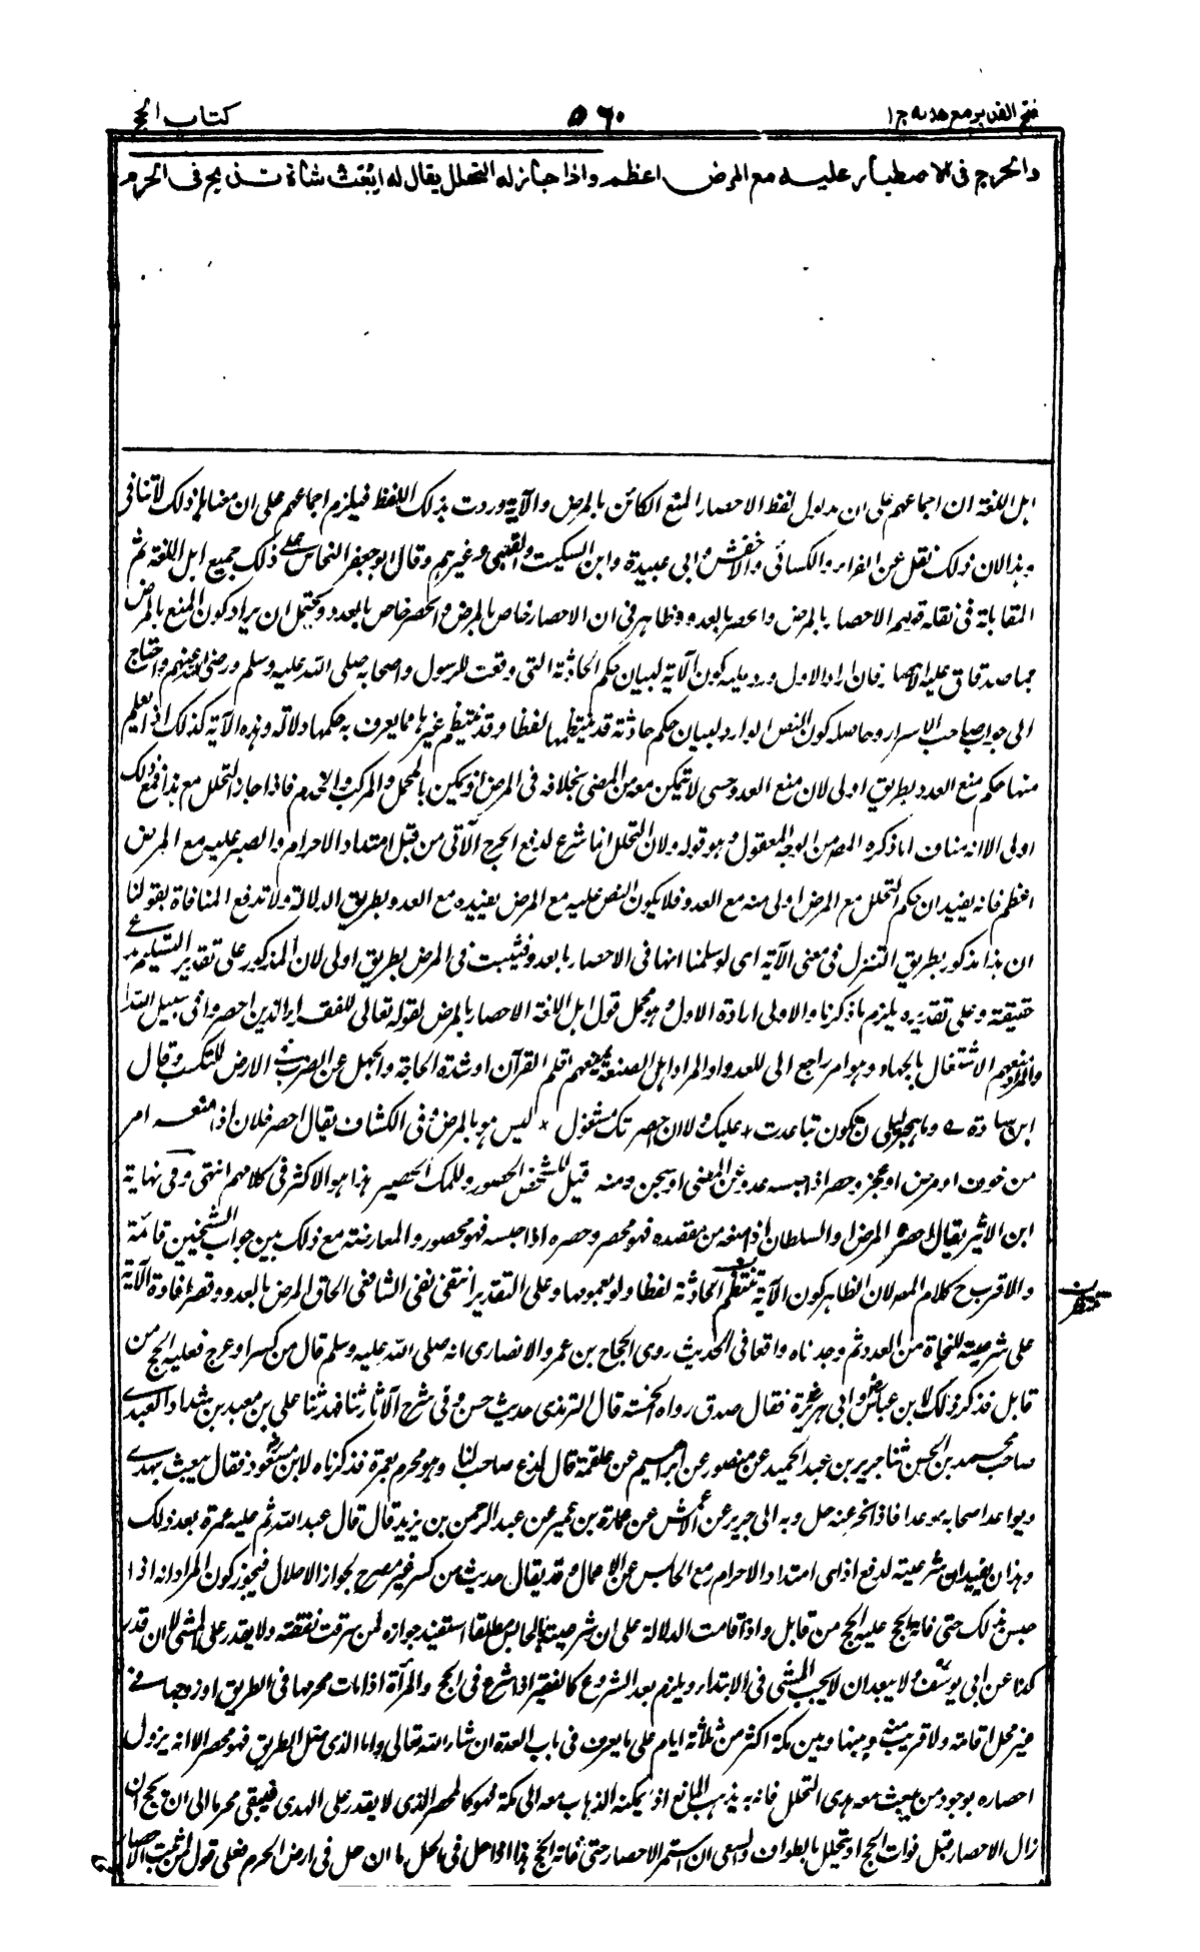 فتح القدير مع هدايه ج١
٥٦٠
كتاب الحج
والحرج فى الاصطبار عليه مع المرض اعظم واذا جاز له التحلل يقال له ابعث شاة تذبح فى الحرم
اهل اللغة ان اجماعهم على ان مدلول لفظ الاحصار المنع الكائن بالمرض والآية وردت بذلك اللفظ فيلزم اجماعهم على ان معناها ذلك لاتنافى
وهذا لان ذلك نقل عن الفراء والكسائى والاخفش وابى عبيدة وابن السكيت والقتبى وغيرهم وقال ابو جعفر النحاس على ذلك جميع اهل اللغة ثم
المقابلة فى نقله قولهم الاحصار بالمرض والحصر بالعدو وظاهر فى ان الاحصار خاص بالمرض والحصر خاص بالعدو ويحتمل ان يراد كون المنع بالمرض
مما صدقات عليه الاحصار فان اراد الاول ورد عليه كون الآية لبيان حكم الحادثة التى وقعت للرسول واصحابه صلى الله عليه وسلم ورضى الله عنهم واحتاج
الى جواب صاحب الاسرار وحاصله كون النص الوارد لبيان حكم حادثة قد ينتظمها لفظا وقد ينتظم غيرها مما يعرف به حكمها دلالة وهذه الآية كذلك اذ يعلم
منها حكم منع العدو بطريق اولى لان منع العدو حسى لا يتمكن معه من المضى بخلافه فى المرض اذ يمكن بالمحمل والمركب والخدم فاذا جاز التحلل مع هذا فمع ذلك
اولى الا انه مناف لما ذكره المصر من الوجه المعقول وهو قوله ولان التحلل انما شرع لدفع الحرج الآتى من قبل امتداد الاحرام والصبر عليه مع المرض
اعظم فانه يفيد ان حكم التحلل مع المرض اولى منه مع العدو فلا يكون النص عليه مع المرض يفيده مع العدو بطريق الدلالة ولا تدفع المنافاة بقولنا
ان هذا مذكور بطريق التنزل فى معنى الآية اى لو سلمنا انها فى الاحصار بالعدو فيثبت فى المرض بطريق اولى لان المذكور على تقدير التسليم يدعى
حقيقته وعلى تقديره يلزم ما ذكرنا والاولى ارادة الاول وهو محمل قول اهل اللغة الاحصار بالمرض لقوله تعالى للفقراء الذين احصروا فى سبيل الله
والمراد منعهم الاشتغال بالجهاد وهو امر راجع الى العدو او المراد اهل الصفة منعهم تعلم القرآن او شدة الحاجة والجهل عن الضرب فى الارض للتكسب وقال
ابن ميادة ؎ وما هجر ليلى ان تكون تباعدت * عليك ولا ان احصرتك شغول * ليس هو بالمرض وفى الكشاف يقال احصر فلان اذا منعه امر
من خوف او مرض او عجز وحصر اذا حبسه عدو عن المضى او سجن ومنه قيل للمحبس الحصير وللملك الحصير هذا هو الاكثر فى كلامهم انتهى وفى نهاية
ابن الاثير يقال احصره المرض او السلطان اذا منعه من مقصده فهو محصر وحصره اذا حبسه فهو محصور والمعارضة مع ذلك بين جواب الشيخين قائمة
والاقرب ح كلام المص لان الظاهر كون الآية تنتظم الحادثة لفظا ولو بعمومها وعلى التقدير انتفى نفى الشافعى الحاق المرض بالعدو وقصر افادة الآية
على شرعيته للنجاة من العدو ثم وجدناه واقعا فى الحديث روى الحجاج بن عمرو الانصارى انه صلى الله عليه وسلم قال من كسر او عرج فعليه الحج من
قابل فذكر ذلك لابن عباس وابى هريرة فقال صدق رواه الخمسة قال الترمذى حديث حسن وفى شرح الآثار ثنا فهد ثنا على بن معبد بن شداد العبدى
صاحب محمد بن الحسن ثنا جرير بن عبد الحميد عن منصور عن ابراهيم عن علقمة قال لدغ صاحب لنا وهو محرم بعمرة فذكرناه لابن مسعود فقال يبعث بهدى
ويواعد اصحابه موعدا فاذا نحر عنه حل وبه الى جرير عن الاعمش عن عمارة بن عمير عن عبد الرحمن بن يزيد قال قال عبد الله ثم عليه عمرة بعد ذلك
وهذا يفيد ان شرعيته لدفع اذى امتداد الاحرام مع الحابس عن الاعمال وقد يقال حديث من كسر غير مصرح بجواز الاحلال فيجوز كون المراد انه اذا
حبس بذلك حتى فاته الحج عليه الحج من قابل واذا قامت الدلالة على ان شرعيته للحابس مطلقا استفيد جوازه لمن سرقت نفقته ولا يقدر على المشى لا ان قدر
كذا عن ابى يوسف ولا يبعد ان لا يجب المشى فى الابتداء ويلزم بعد الشروع كالفقير اذا شرع فى الحج والمرأة اذا مات محرمها فى الطريق او زوجها فى
غير محل اقامة ولا قريب منه وبينها وبين مكة اكثر من ثلاثة ايام على ما يعرف فى باب العدة ان شاء الله تعالى واما الذى ضل الطريق فهو محصر الا انه يزول
احصاره بوجود من يبعث معه هدى التحلل فانه به يذهب المانع اذ يمكنه الذهاب معه الى مكة فهو كالمحصر الذى لا يقدر على الهدى فيبقى محرما الى ان يحج ان
زال الاحصار قبل فوات الحج او يتحلل بالطواف والسعى ان استمر الاحصار حتى فاته الحج هذا اذا ضل فى الحل اما ان ضل فى ارض الحرم فعلى قول من اثبت الاحصار